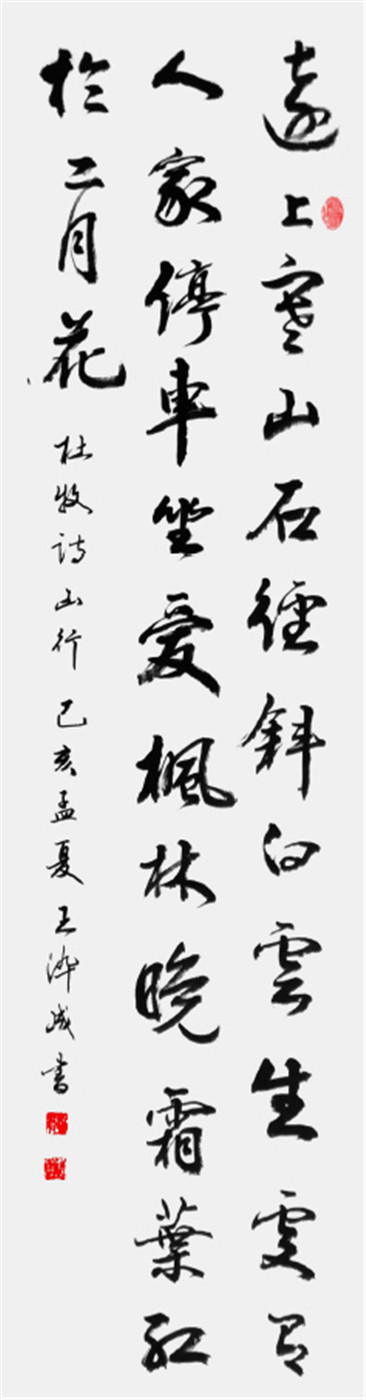 遠上寒山石徑斜白雲生處有
人家停車坐愛楓林晚霜葉紅
於二月花
杜牧詩山行己亥孟夏王沛成書